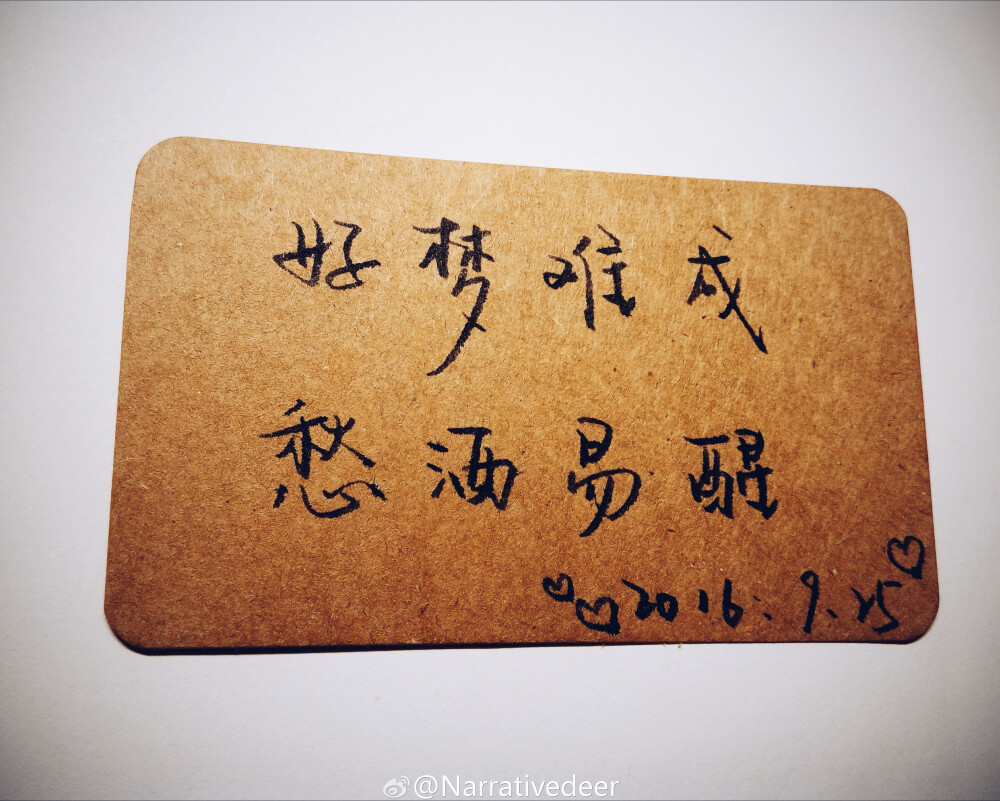 好梦难成
愁酒易醒
2016.9.25
@Narrativedeer